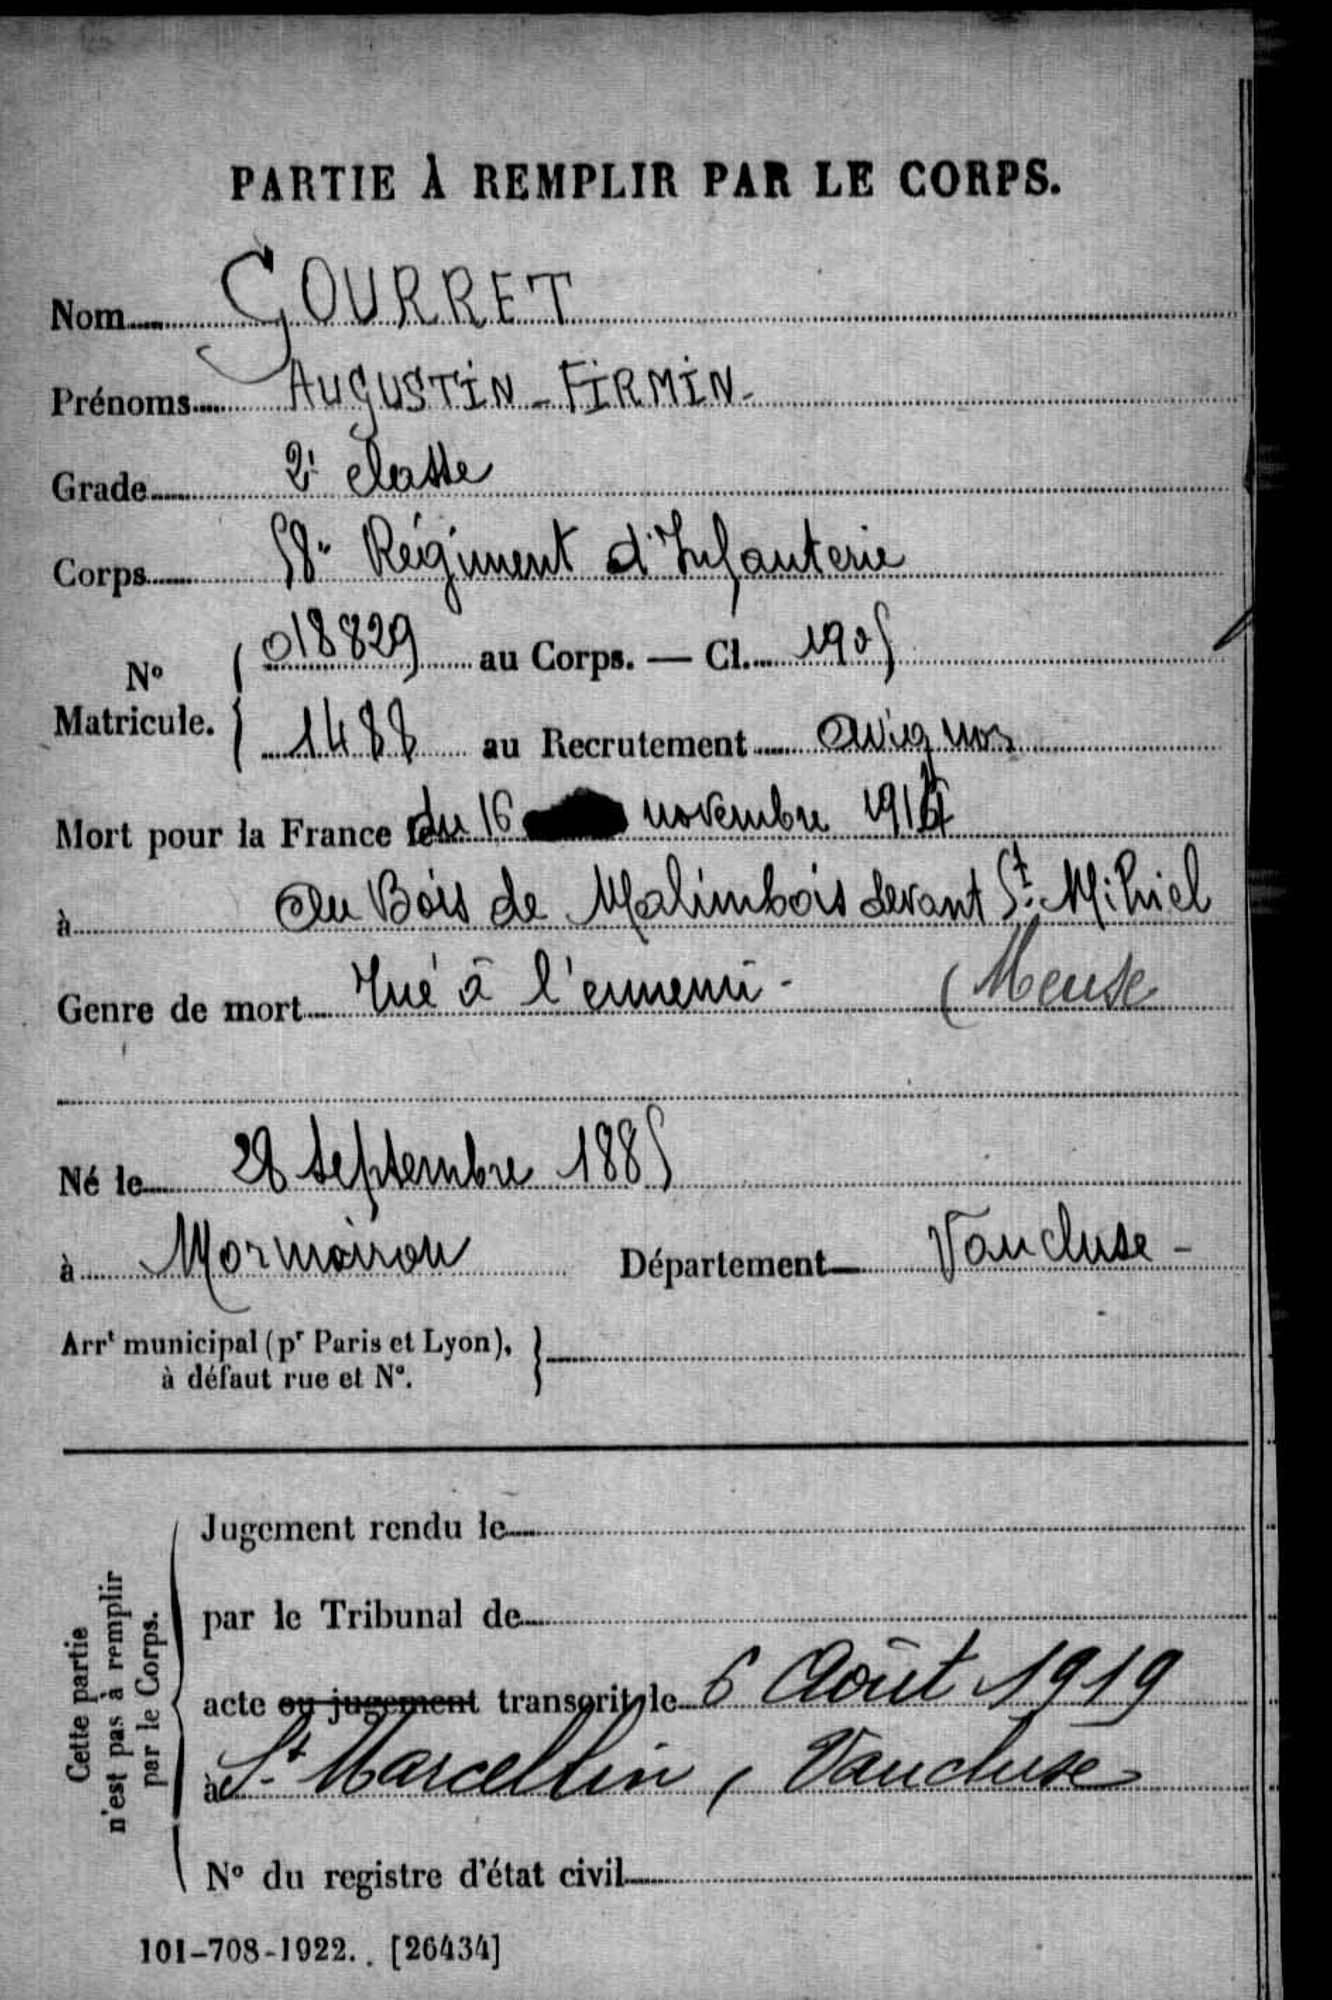 PARTIE À REMPLIR PAR LE CORPS.
Nom GOURRET
Prénoms AUGUSTIN - FIRMIN -
Grade 2e classe
Corps 58e Régiment d'Infanterie
No Matricule. { 018829 au Corps. — Cl. 1905
1488 au Recrutement Avignon
Mort pour la France le du 16 novembre 1914
à Au Bois de Malimbois devant St. Mihiel
(Meuse
Genre de mort Tué à l'ennemi -
Né le 28 septembre 1885
à Mormoiron Département Vaucluse -
Arrt municipal (pr Paris et Lyon), }
à défaut rue et No.
Cette partie
n'est pas à remplir
par le Corps.
Jugement rendu le
par le Tribunal de
acte ou jugement transcrit le 6 Août 1919
à St. Marcellin, Vaucluse
No du registre d'état civil
101-708-1922. . [26434]